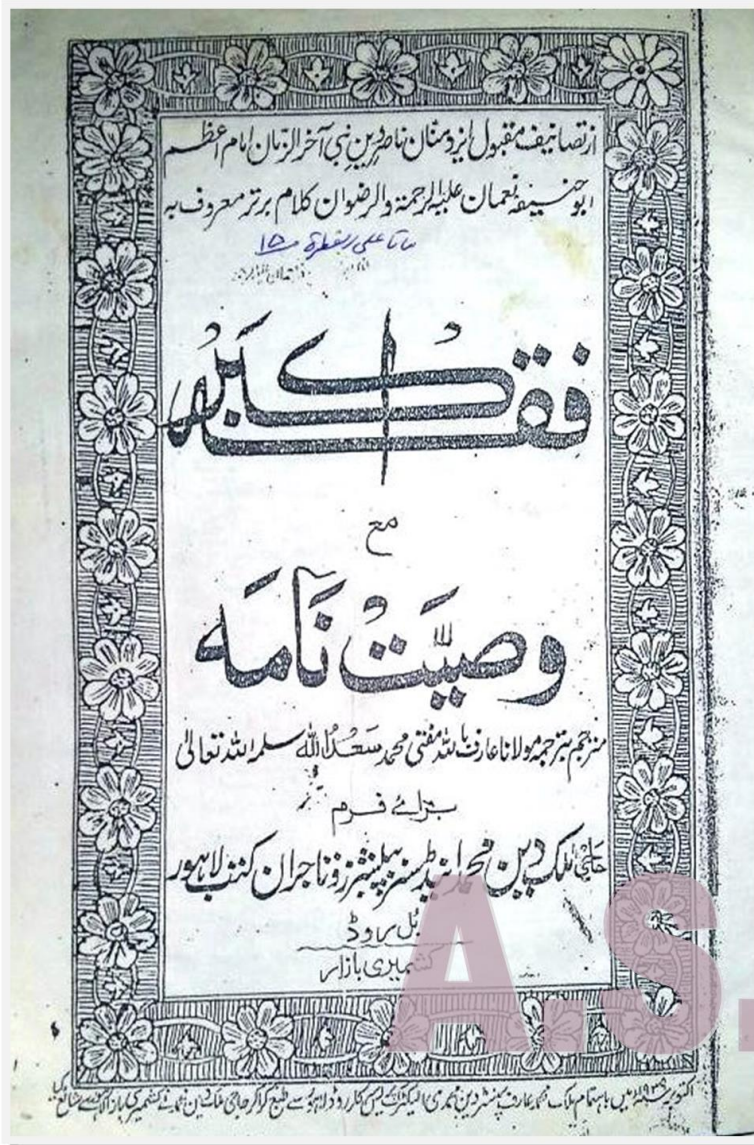 از تصانیف مقبول ایزد منان ناصر دین نبی آخر الزمان امام اعظم
ابو حنیفہ نعمان علیہ الرحمۃ والرضوان کلام برتر معروف بہ
فقہ اکبر
مع
وصیت نامہ
مترجم بترجمہ مولانا عارف باللہ مفتی محمد سعد اللہ سلمہ اللہ تعالیٰ
برائے فرم
حاجی ملک دین محمد اینڈ سنز پبلیشرز و تاجران کتب لاہور
بل روڈ
کشمیری بازار
اکتوبر میں باہتمام ملک محمد عارف پرنٹر دین محمدی الیکٹرک پریس لاہور سے طبع کرا کر حاجی ملک دین محمد نے کشمیری بازار لاہور سے شائع کیا
A.S.